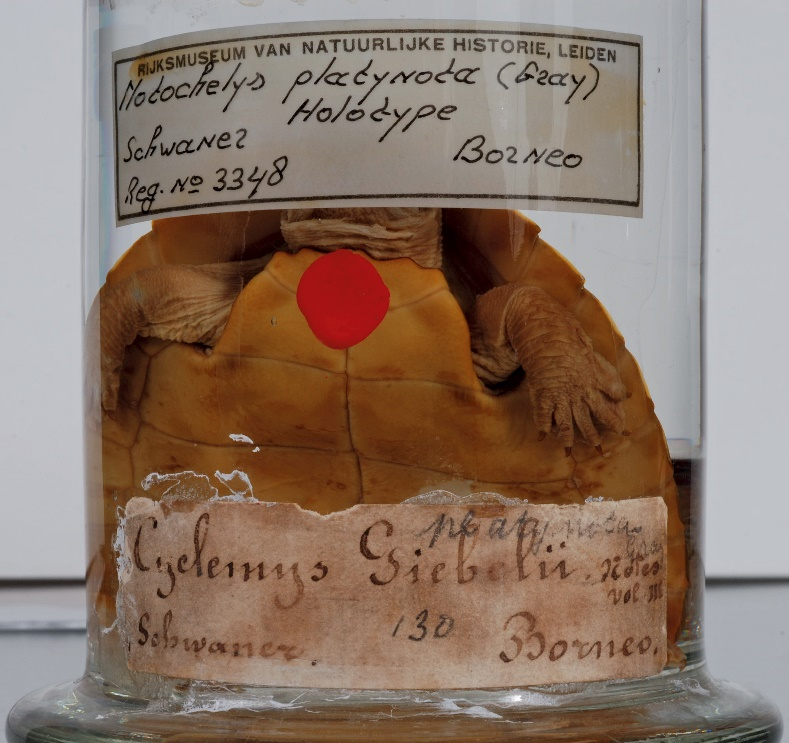 RIJKSMUSEUM VAN NATUURLIJKE HISTORIE, LEIDEN
Notochelys platynota (Gray)
Holotype
Schwaner Borneo
Reg. No 3348
platynota
Gray
Cyclemys Giebelii. Notes
vol III
Schwaner. 130 Borneo.